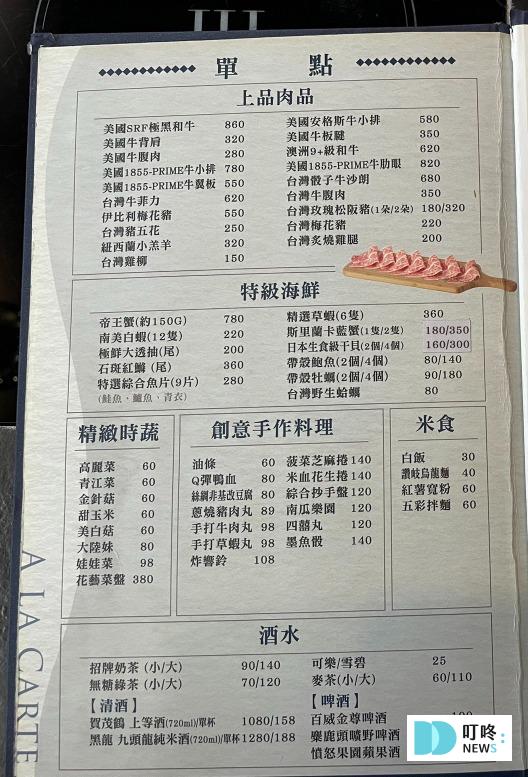 III
單 點
上品肉品
美國SRF極黑和牛 860
美國牛背肩 320
美國牛腹肉 280
美國1855-PRIME牛小排 780
美國1855-PRIME牛翼板 550
台灣牛菲力 620
伊比利梅花豬 550
台灣豬五花 250
紐西蘭小羔羊 320
台灣雞柳 150
美國安格斯牛小排 580
美國牛板腱 350
澳洲9+級和牛 620
美國1855-PRIME牛肋眼 820
台灣骰子牛沙朗 680
台灣牛腹肉 350
台灣玫瑰松阪豬(1朵/2朵) 180/320
台灣梅花豬 220
台灣炙燒雞腿 200
特級海鮮
帝王蟹(約150G) 780
南美白蝦(12隻) 220
極鮮大透抽(尾) 200
石斑紅鰤(尾) 360
特選綜合魚片(9片) 280
(鮭魚、鱸魚、青衣)
精選草蝦(6隻) 360
斯里蘭卡藍蟹(1隻/2隻) 180/350
日本生食級干貝(2個/4個) 160/300
帶殼鮑魚(2個/4個) 80/140
帶殼牡蠣(2個/4個) 90/180
台灣野生蛤蠣 80
精緻時蔬
高麗菜 60
青江菜 60
金針菇 60
甜玉米 60
美白菇 60
大陸妹 80
娃娃菜 98
花藝菜盤 380
創意手作料理
油條 60
Q彈鴨血 80
絲綢非基改豆腐 80
蔥燒豬肉丸 89
手打牛肉丸 98
手打草蝦丸 98
炸響鈴 108
菠菜芝麻捲 140
米血花生捲 140
綜合抄手盤 120
南瓜樂園 120
四囍丸 120
墨魚骰 140
米食
白飯 30
讚岐烏龍麵 40
紅薯寬粉 60
五彩拌麵 60
酒水
招牌奶茶 (小/大) 90/140
無糖綠茶 (小/大) 70/120
【清酒】
賀茂鶴 上等酒(720ml)/單杯 1080/158
黑龍 九頭龍純米酒(720ml)/單杯 1280/188
可樂/雪碧 25
麥茶(小/大) 60/110
【啤酒】
百威金尊啤酒
麋鹿頭曠野啤酒
憤怒果園蘋果酒
A LA CARTE
叮咚
NEWS